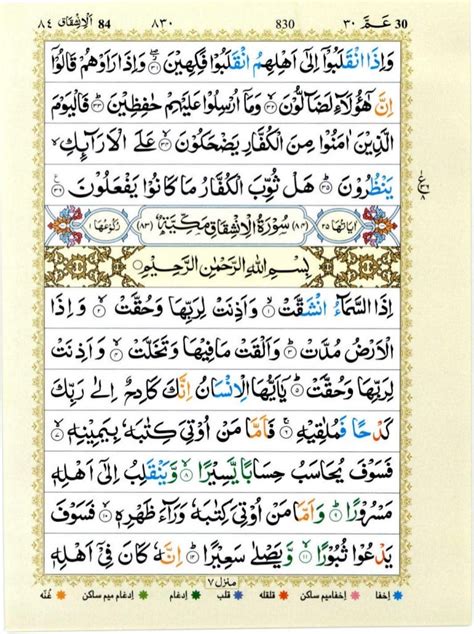 30 عَمَّ ٣٠ 830 ٨٣٠ 84 اَلْاِنْشِقَاق ٨٤
وَاِذَا انْقَلَبُوْۤا اِلٰٓى اَهْلِهِمُ انْقَلَبُوْا فَكِهِيْنَ ۖ۝٣١ وَاِذَا رَاَوْهُمْ قَالُوْۤا
اِنَّ هٰٓؤُلَآءِ لَضَآلُّوْنَ ۙ۝٣٢ وَمَاۤ اُرْسِلُوْا عَلَيْهِمْ حٰفِظِيْنَ ۝٣٣ فَالْيَوْمَ
الَّذِيْنَ اٰمَنُوْا مِنَ الْكُفَّارِ يَضْحَكُوْنَ ۙ۝٣٤ عَلَى الْاَرَآئِكِ ۙ
يَنْظُرُوْنَ ؕ۝٣٥ هَلْ ثُوِّبَ الْكُفَّارُ مَا كَانُوْا يَفْعَلُوْنَ ۝٣٦
اٰيَاتُهَا ٢٥ (٨٤) سُوْرَةُ الْاِنْشِقَاقِ مَكِّيَّةٌ (٨٣) رُكُوْعُهَا ١
بِسْمِ اللّٰهِ الرَّحْمٰنِ الرَّحِيْمِ
اِذَا السَّمَآءُ انْشَقَّتْ ۙ۝١ وَاَذِنَتْ لِرَبِّهَا وَحُقَّتْ ۙ۝٢ وَاِذَا
الْاَرْضُ مُدَّتْ ۙ۝٣ وَاَلْقَتْ مَا فِيْهَا وَتَخَلَّتْ ۙ۝٤ وَاَذِنَتْ
لِرَبِّهَا وَحُقَّتْ ؕ۝٥ يٰۤاَيُّهَا الْاِنْسَانُ اِنَّكَ كَادِحٌ اِلٰى رَبِّكَ
كَدْحًا فَمُلٰقِيْهِ ۚ۝٦ فَاَمَّا مَنْ اُوْتِيَ كِتٰبَهٗ بِيَمِيْنِهٖ ۙ۝٧
فَسَوْفَ يُحَاسَبُ حِسَابًا يَّسِيْرًا ۙ۝٨ وَّيَنْقَلِبُ اِلٰٓى اَهْلِهٖ
مَسْرُوْرًا ؕ۝٩ وَاَمَّا مَنْ اُوْتِيَ كِتٰبَهٗ وَرَآءَ ظَهْرِهٖ ۙ۝١٠ فَسَوْفَ
يَدْعُوْا ثُبُوْرًا ۙ۝١١ وَّيَصْلٰى سَعِيْرًا ؕ۝١٢ اِنَّهٗ كَانَ فِيْۤ اَهْلِهٖ
منزل ٧
اخفا اخفامیم ساکن قلقله قلب ادغام ادغام میم ساکن غُنّه